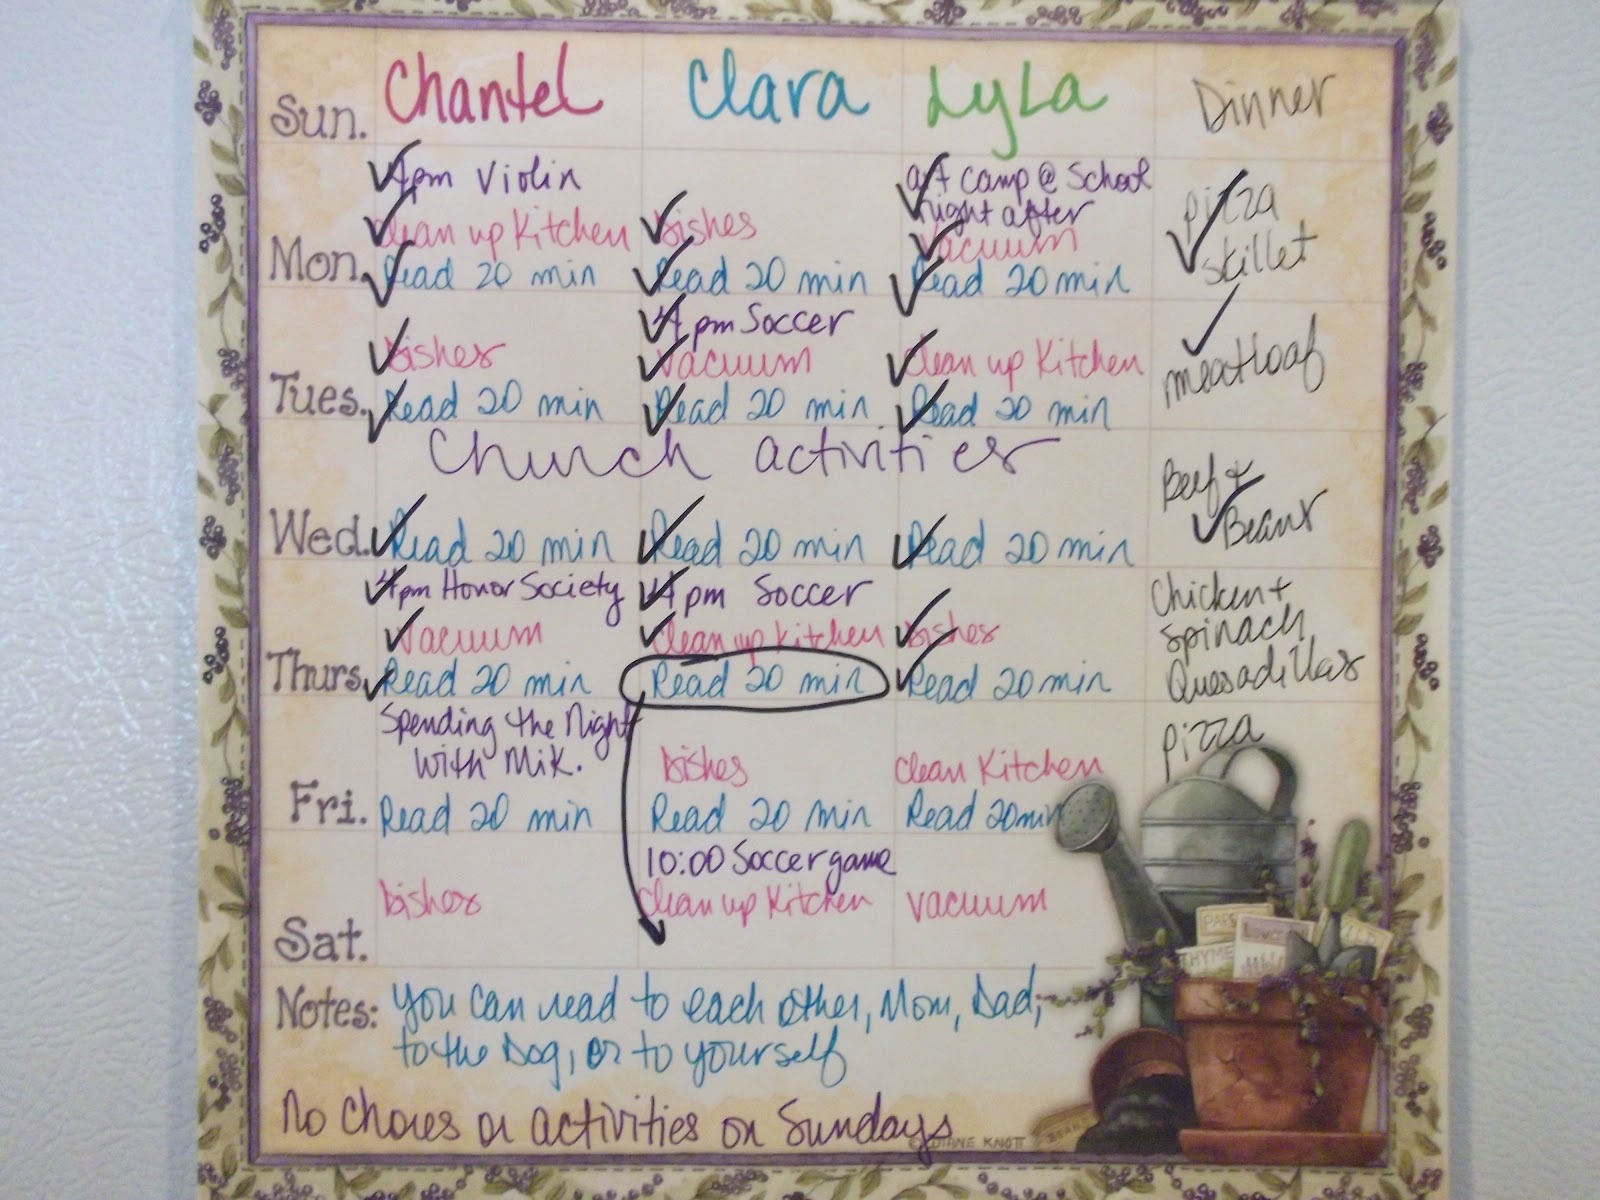 Sun. Chantel Clara Lyla Dinner
4pm Violin
art camp @ School
right after
Clean up Kitchen
Dishes
Vacuum
pizza
skillet
Mon. Read 20 min Read 20 min Read 20 min
4pm Soccer
Dishes Vacuum Clean up Kitchen meatloaf
Tues. Read 20 min Read 20 min Read 20 min
Church activities
Beef +
Beans
Wed. Read 20 min Read 20 min Read 20 min
4pm Honor Society 4pm Soccer
Vacuum Clean up Kitchen Dishes
Chicken +
Spinach
Quesadillas
Thurs. Read 20 min Read 20 min Read 20 min
Spending the Night
with Mik.
Dishes Clean Kitchen pizza
Fri. Read 20 min Read 20 min Read 20 min
10:00 Soccer game
Dishes Clean up Kitchen vacuum
Sat.
THYME
Notes: You can read to each other, Mom, Dad,
to the Dog, or to yourself
No Chores or activities on Sundays
© DIANE KNOTT